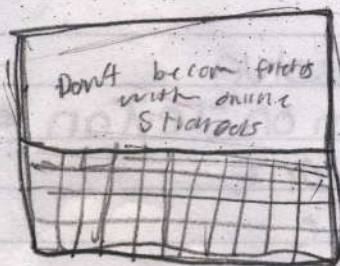 Don't becom frietds
with online
Strangets